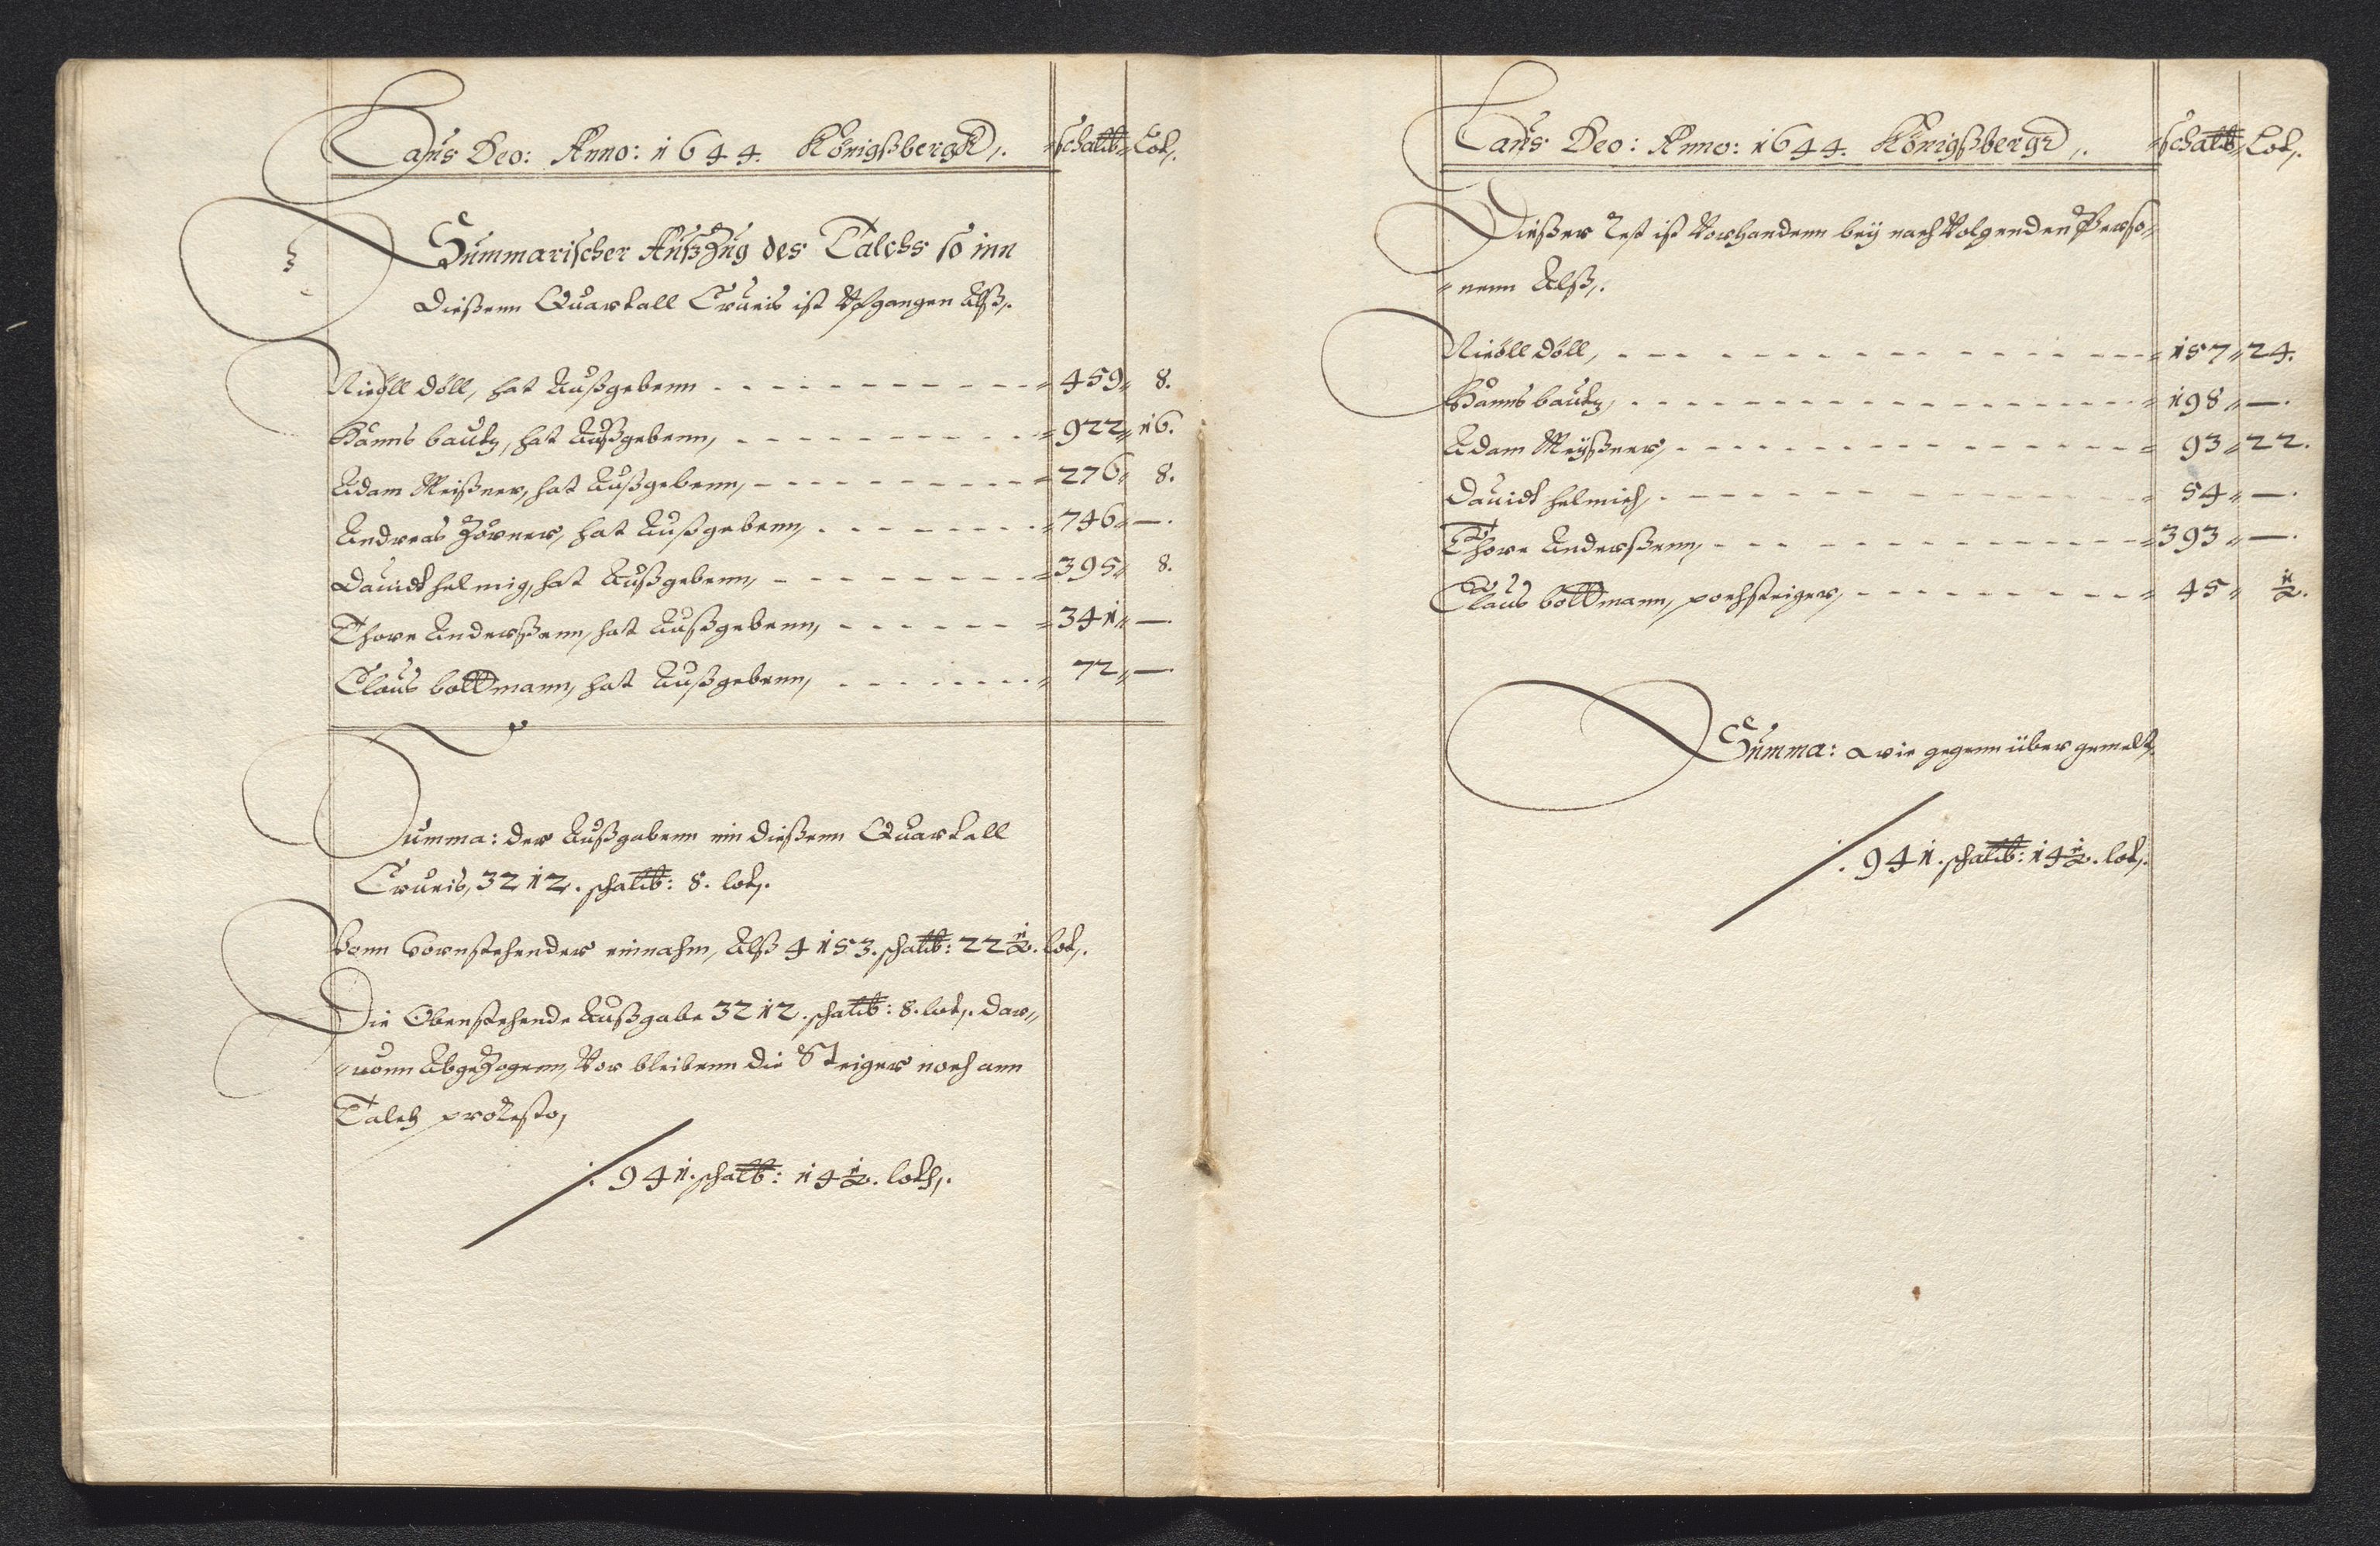 Laus Deo: Anno: 1644. Königßbergk,. schal℔ Lot,.
Summarischer Außzug des Talchs so inn
dießenn Quartall Crucis ist Vfgangen Alß,.
Nicoll Döll, hat Außgebenn 459 8.
Hanns bautz, hat Außgebenn, 922 16.
Adam Meißner, hat Außgebenn, 276 8.
Andreas Zörner, hat Außgebenn, 746 —.
Dauidt helmig, hat Außgebenn, 395 8.
Thore Anderßenn, hat Außgebenn, 341 —.
Claus boltmann, hat Außgebenn, 72 —
Summa: der Außgabenn inn dießenn Quartall
Crucis, 3212. schal℔: 8. lot,.
Vonn vornstehender einnahm, Alß 4153. schal℔: 22½. lot,.
Die Obenstehende Außgabe 3212. schal℔: 8. lot,. dar„
„uonn Abgezogenn, Vor bleibenn die Steiger noch ann
Talch pro Resto,
941. schal℔: 14½. loth,.
Laus Deo: Anno: 1644. Königßbergk,. schal℔ Lot,.
Dießer Rest ist Vorhandenn bey nachVolgenden Perso„
„nenn Alß,.
Nicoll Döll, 157 24.
Hanns bautz, 198 —.
Adam Meyßner, 93 22.
Dauidt helmich, 54 —.
Thore Anderßenn, 393 —.
Claus boltmann, pochsteiger, 45 ½.
Summa: wie gegenn über gemelt,
941. schal℔: 14½. lot,.